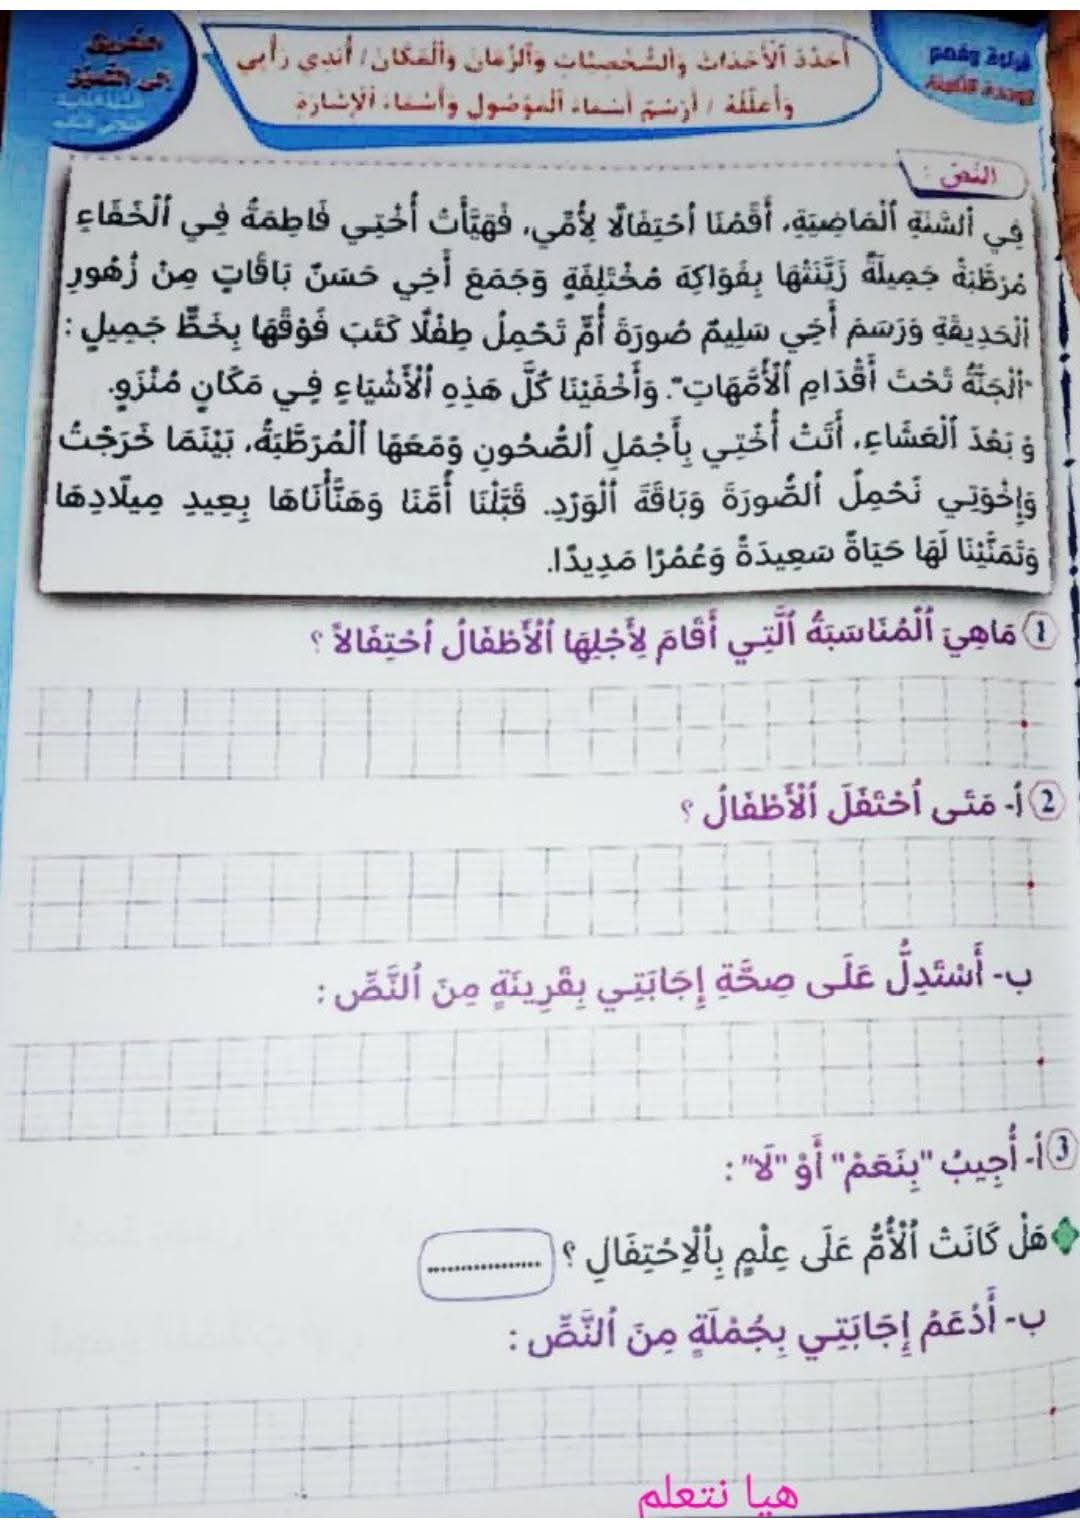 أُحَدِّدُ ٱلْأَحْدَاثَ وَٱلشَّخْصِيَّاتِ وَٱلزَّمَانَ وَٱلْمَكَانَ / أُبْدِي رَأْيِي
وَأُعَلِّلُهُ / أَرْسُمُ أَسْمَاءَ ٱلْمَوْصُولِ وَأَسْمَاءَ ٱلْإِشَارَةِ
ٱلنَّصُّ :
فِي ٱلسَّنَةِ ٱلْمَاضِيَةِ، أَقَمْنَا ٱحْتِفَالًا لِأُمِّي، فَهَيَّأَتْ أُخْتِي فَاطِمَةُ فِي ٱلْخَفَاءِ
مُرَطَّبَةً جَمِيلَةً زَيَّنَتْهَا بِفَوَاكِهَ مُخْتَلِفَةٍ وَجَمَعَ أَخِي حَسَنٌ بَاقَاتٍ مِنْ زُهُورِ
ٱلْحَدِيقَةِ وَرَسَمَ أَخِي سَلِيمٌ صُورَةَ أُمٍّ تَحْمِلُ طِفْلًا كَتَبَ فَوْقَهَا بِخَطٍّ جَمِيلٍ :
"ٱلْجَنَّةُ تَحْتَ أَقْدَامِ ٱلْأُمَّهَاتِ". وَأَخْفَيْنَا كُلَّ هَذِهِ ٱلْأَشْيَاءِ فِي مَكَانٍ مُنْزَوٍ.
وَ بَعْدَ ٱلْعَشَاءِ، أَتَتْ أُخْتِي بِأَجْمَلِ ٱلصُّحُونِ وَمَعَهَا ٱلْمُرَطَّبَةُ، بَيْنَمَا خَرَجْتُ
وَإِخْوَتِي نَحْمِلُ ٱلصُّورَةَ وَبَاقَةَ ٱلْوَرْدِ. قَبَّلْنَا أُمَّنَا وَهَنَّأْنَاهَا بِعِيدِ مِيلَادِهَا
وَتَمَنَّيْنَا لَهَا حَيَاةً سَعِيدَةً وَعُمُرًا مَدِيدًا.
1 مَاهِيَ ٱلْمُنَاسَبَةُ ٱلَّتِي أَقَامَ لِأَجْلِهَا ٱلْأَطْفَالُ ٱحْتِفَالاً ؟
2 أ- مَتَى ٱحْتَفَلَ ٱلْأَطْفَالُ ؟
ب- أَسْتَدِلُّ عَلَى صِحَّةِ إِجَابَتِي بِقَرِينَةٍ مِنَ ٱلنَّصِّ :
3 أ- أُجِيبُ "بِنَعَمْ" أَوْ "لَا" :
هَلْ كَانَتْ ٱلْأُمُّ عَلَى عِلْمٍ بِٱلْاِحْتِفَالِ ؟ ................
ب- أَدْعَمُ إِجَابَتِي بِجُمْلَةٍ مِنَ ٱلنَّصِّ :
هيا نتعلم